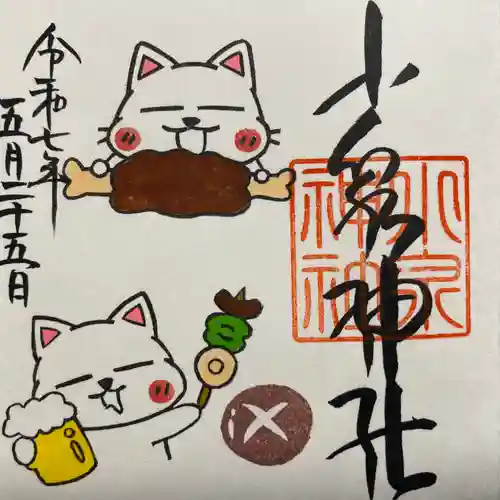 小泉神社
小泉
神社
令和七年
五月二十五日